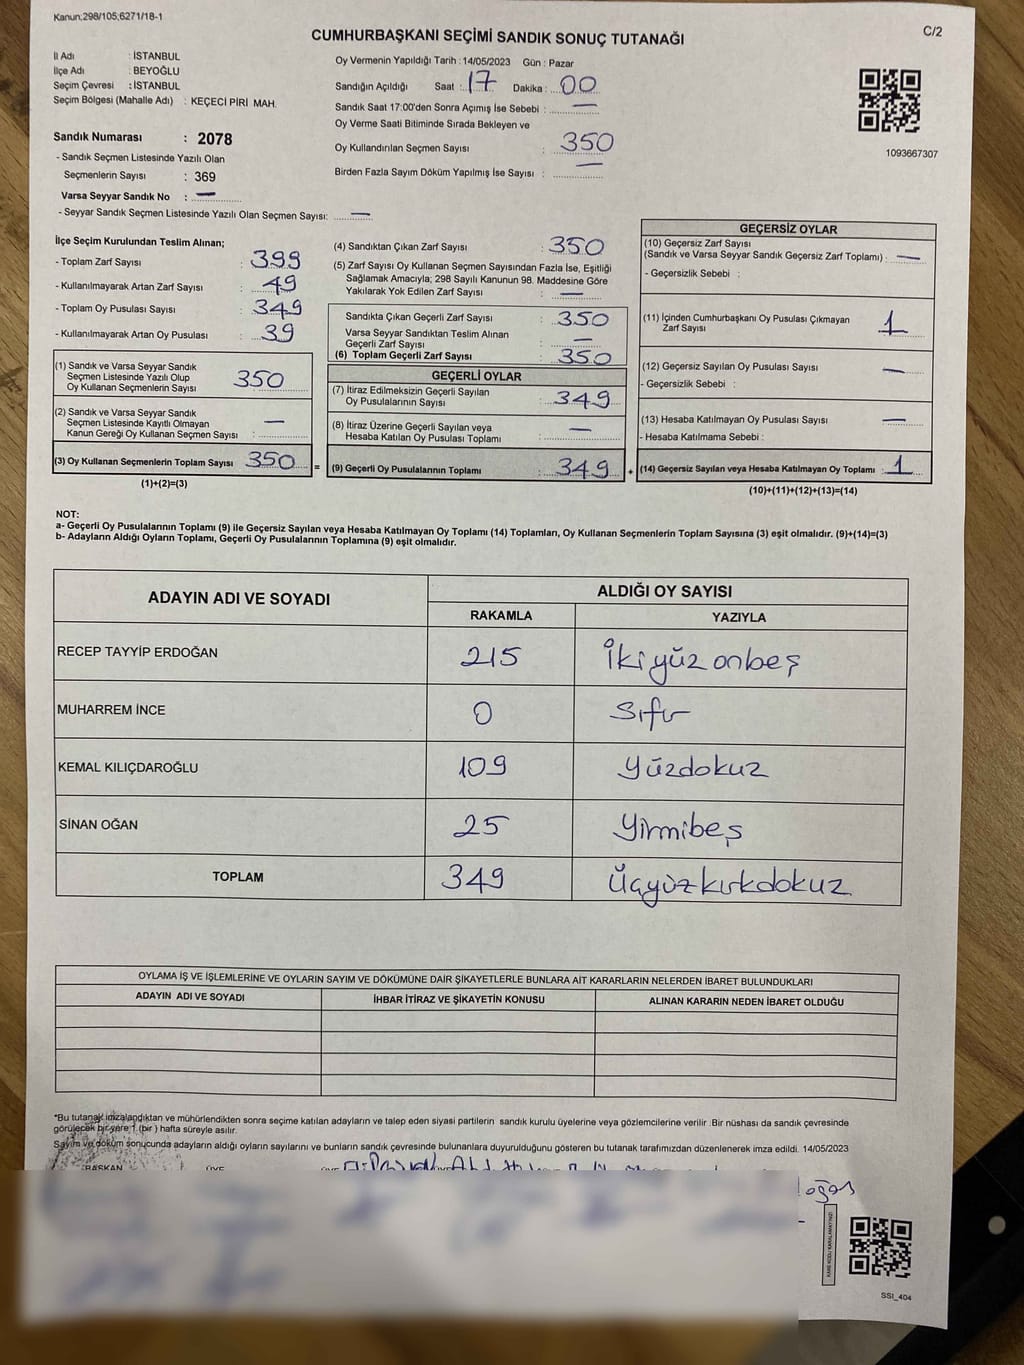 Kanun;298/105;6271/18-1
C/2
CUMHURBAŞKANI SEÇİMİ SANDIK SONUÇ TUTANAĞI
İl Adı : İSTANBUL
İlçe Adı : BEYOĞLU
Seçim Çevresi : İSTANBUL
Seçim Bölgesi (Mahalle Adı) : KEÇECİ PİRİ MAH.
Sandık Numarası : 2078
- Sandık Seçmen Listesinde Yazılı Olan
Seçmenlerin Sayısı : 369
Varsa Seyyar Sandık No : —
- Seyyar Sandık Seçmen Listesinde Yazılı Olan Seçmen Sayısı: —
Oy Vermenin Yapıldığı Tarih : 14/05/2023 Gün : Pazar
Sandığın Açıldığı Saat : 17 Dakika : 00
Sandık Saat 17:00'den Sonra Açımış İse Sebebi : —
Oy Verme Saati Bitiminde Sırada Bekleyen ve
Oy Kullandırılan Seçmen Sayısı : 350
Birden Fazla Sayım Döküm Yapılmış İse Sayısı : —
1093667307
İlçe Seçim Kurulundan Teslim Alınan;
- Toplam Zarf Sayısı : 399
- Kullanılmayarak Artan Zarf Sayısı : 49
- Toplam Oy Pusulası Sayısı : 349
- Kullanılmayarak Artan Oy Pusulası : 39
(1) Sandık ve Varsa Seyyar Sandık
Seçmen Listesinde Yazılı Olup
Oy Kullanan Seçmenlerin Sayısı 350
(2) Sandık ve Varsa Seyyar Sandık
Seçmen Listesinde Kayıtlı Olmayan
Kanun Gereği Oy Kullanan Seçmen Sayısı : —
(3) Oy Kullanan Seçmenlerin Toplam Sayısı 350 =
(1)+(2)=(3)
(4) Sandıktan Çıkan Zarf Sayısı : 350
(5) Zarf Sayısı Oy Kullanan Seçmen Sayısından Fazla İse, Eşitliği
Sağlamak Amacıyla; 298 Sayılı Kanunun 98. Maddesine Göre
Yakılarak Yok Edilen Zarf Sayısı : —
Sandıkta Çıkan Geçerli Zarf Sayısı : 350
Varsa Seyyar Sandıktan Teslim Alınan
Geçerli Zarf Sayısı : —
(6) Toplam Geçerli Zarf Sayısı : 350
GEÇERLİ OYLAR
(7) İtiraz Edilmeksizin Geçerli Sayılan
Oy Pusulalarının Sayısı : 349
(8) İtiraz Üzerine Geçerli Sayılan veya
Hesaba Katılan Oy Pusulası Toplamı : —
(9) Geçerli Oy Pusulalarının Toplamı : 349 +
GEÇERSİZ OYLAR
(10) Geçersiz Zarf Sayısı
(Sandık ve Varsa Seyyar Sandık Geçersiz Zarf Toplamı) : —
- Geçersizlik Sebebi :
(11) İçinden Cumhurbaşkanı Oy Pusulası Çıkmayan
Zarf Sayısı 1
(12) Geçersiz Sayılan Oy Pusulası Sayısı : —
- Geçersizlik Sebebi :
(13) Hesaba Katılmayan Oy Pusulası Sayısı : —
- Hesaba Katılmama Sebebi :
(14) Geçersiz Sayılan veya Hesaba Katılmayan Oy Toplamı : 1
(10)+(11)+(12)+(13)=(14)
NOT:
a- Geçerli Oy Pusulalarının Toplamı (9) ile Geçersiz Sayılan veya Hesaba Katılmayan Oy Toplamı (14) Toplamları, Oy Kullanan Seçmenlerin Toplam Sayısına (3) eşit olmalıdır. (9)+(14)=(3)
b- Adayların Aldığı Oyların Toplamı, Geçerli Oy Pusulalarının Toplamına (9) eşit olmalıdır.
ADAYIN ADI VE SOYADI ALDIĞI OY SAYISI
RAKAMLA YAZIYLA
RECEP TAYYİP ERDOĞAN 215 İkiyüz onbeş
MUHARREM İNCE 0 Sıfır
KEMAL KILIÇDAROĞLU 109 Yüzdokuz
SİNAN OĞAN 25 Yirmibeş
TOPLAM 349 Üçyüzkırkdokuz
OYLAMA İŞ VE İŞLEMLERİNE VE OYLARIN SAYIM VE DÖKÜMÜNE DAİR ŞİKAYETLERLE BUNLARA AİT KARARLARIN NELERDEN İBARET BULUNDUKLARI
ADAYIN ADI VE SOYADI İHBAR İTİRAZ VE ŞİKAYETİN KONUSU ALINAN KARARIN NEDEN İBARET OLDUĞU
*Bu tutanak imzalandıktan ve mühürlendikten sonra seçime katılan adayların ve talep eden siyasi partilerin sandık kurulu üyelerine veya gözlemcilerine verilir. Bir nüshası da sandık çevresinde
görülecek bir yere 1 (bir ) hafta süreyle asılır.
Sayım ve döküm sonucunda adayların aldığı oyların sayılarını ve bunların sandık çevresinde bulunanlara duyurulduğunu gösteren bu tutanak tarafımızdan düzenlenerek imza edildi. 14/05/2023
BAŞKAN ÜYE
KARE KODU KARALAMAYINIZ!
SSI_404